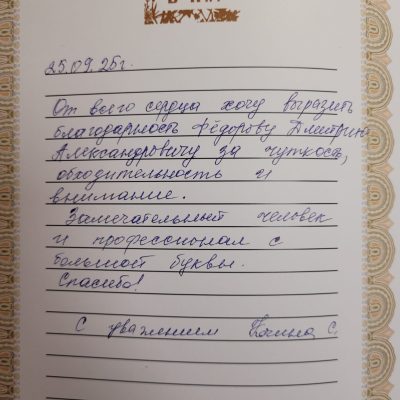 25.09.25г.
От всего сердца хочу выразить
благодарность Фёдорову Дмитрию
Александровичу за чуткость,
обходительность и
внимание.
Замечательный человек
и профессионал с
большой буквы.
Спасибо!
С уважением